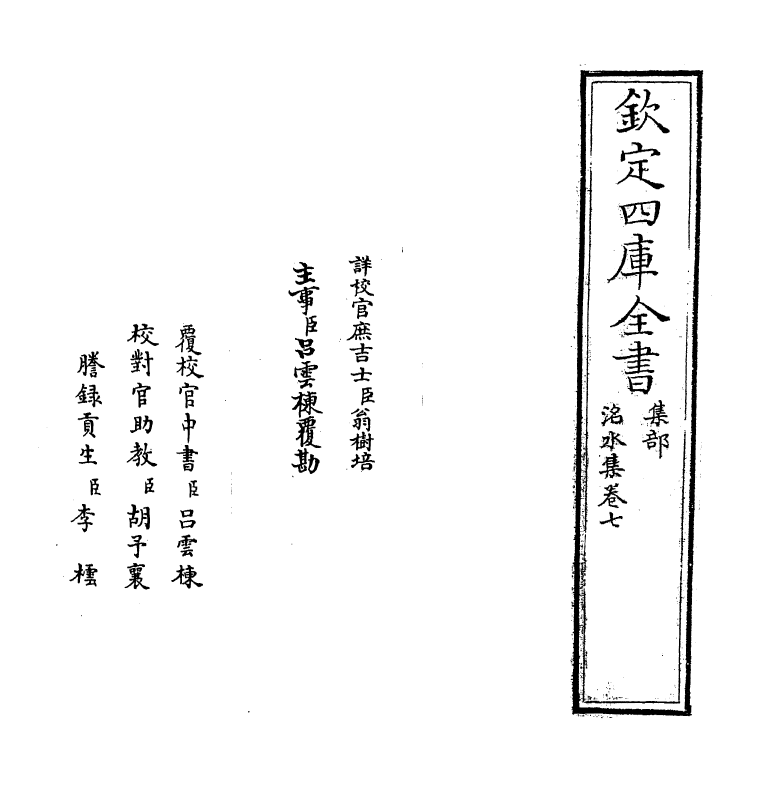 欽定四庫全書
集部
洺水集卷七
詳校官庶吉士臣翁樹培
主事臣呂雲棟覆勘
覆校官中書臣呂雲棟
校對官助教臣胡予襄
謄録貢生臣李橒